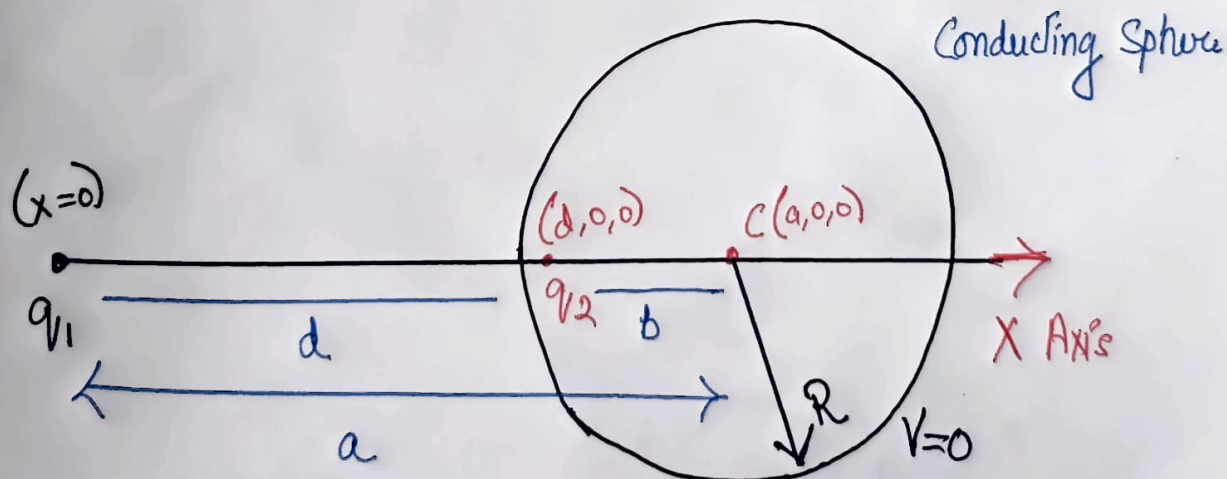 Conducting Sphere
(x=0)
(d,0,0)
C(a,0,0)
q1
q2
b
d
X Axis
a
R
V=0